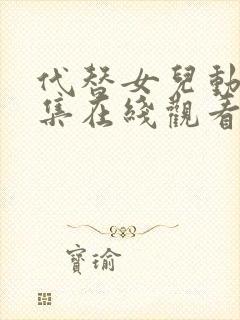 代替女兒動
集在綫觀看
寶瑜